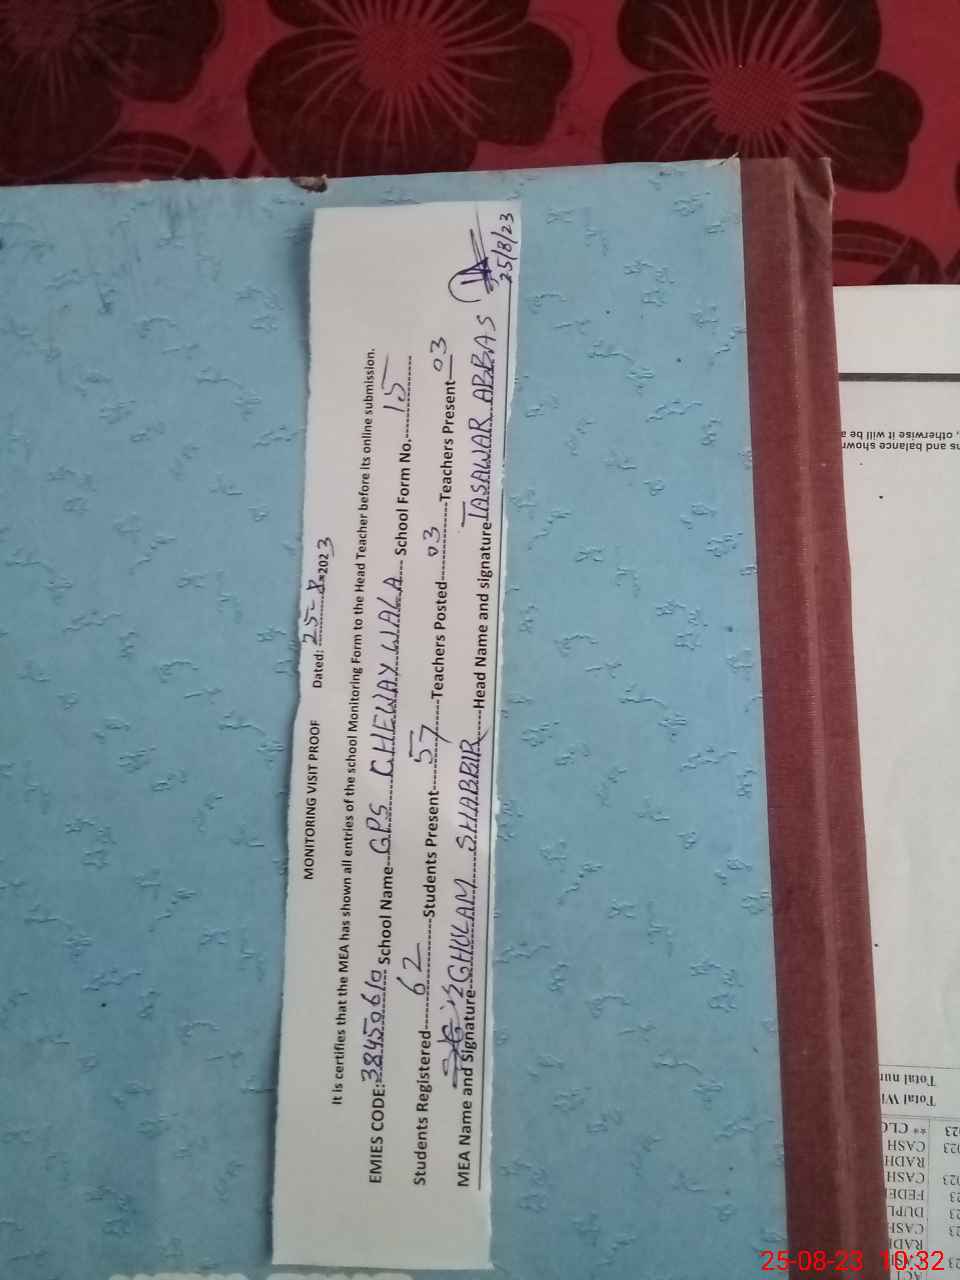 MONITORING VISIT PROOF Dated: 25-8-2023
It is certifies that the MEA has shown all entries of the school Monitoring Form to the Head Teacher before its online submission.
EMIES CODE: 38450610 School Name GPS CHEWAY WALA School Form No. 15
Students Registered 62 Students Present 57 Teachers Posted 03 Teachers Present 03
MEA Name and Signature GHULAM SHABBIR Head Name and signature TASAWAR ABBAS
25/8/23
, otherwise it will be a
ns and balance shown
Total nur
Total Wi
** CLO
CASH
RADH
CASH
FEDE
DUPL
CASH
RADH
CASH
25-08-23 10:32